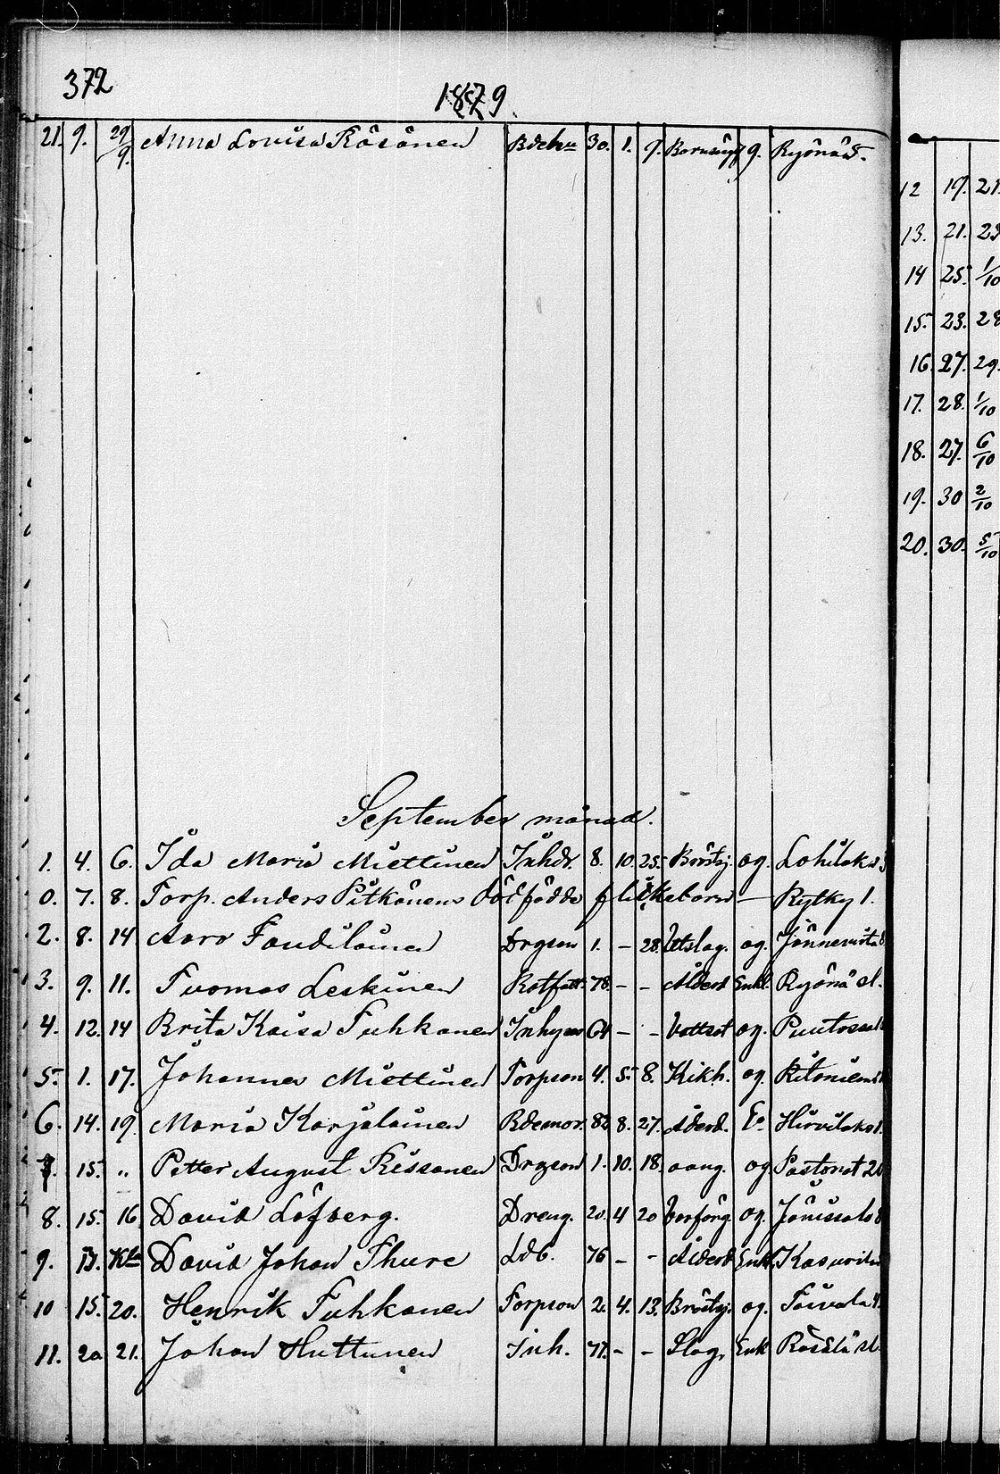 372
1879.
21. 9. 29/9. Anna Lovisa Räsänen Bdeh:u 30. 1. 9. Barnsäng g. Ryönä 5.
September månad.
1. 4. 6. Ida Maria Miettinen Inhdr. 8. 10. 25. Bröstsj. og. Lohilaks
0. 7. 8. Torp. Anders Pitkänens dödfödda flickebarn — Rytky 1.
2. 8. 14 Aaro Taudilainen Drgson 1. – 28. Utslag. og. Jännevirta
3. 9. 11. Tuomas Leskinen Rotfatt. 78. – – Ålderd Enkl. Ryönä sl.
4. 12. 14 Brita Kaisa Tuhkanen Inhys 64 – – Vattsot og. Puutossal
5. 1. 17. Johannes Miettinen Torpson 4. 5. 8. Kikh. og. Ritoniemi
6. 14. 19. Maria Karjalainen Bdeamor. 82 8. 27. Ålderd. E. Hirvilaks 1.
7. 15. „ Petter August Rissanen Drgson 1. 10. 18. oang. og Pastorat 2
8. 15. 16 David Löfberg. Dreng. 20. 4 20 og. Jänissalo
9. David Johan Thure 76 – – Ålderd Enk. Kasurila
10 15. 20. Henrik Tuhkanen Torpson 2. 4. 13. Bröstsj. og. Toivala
11. 20 21. Johan Huttunen Inh. 77. – – Slag, Enk Räsälä sl.
12 19. 21.
13. 21. 23
14 25. 1/10
15. 23. 28
16. 27. 29.
17. 28. 1/10
18. 27. 6/10
19. 30 2/10
20. 30. 5/10